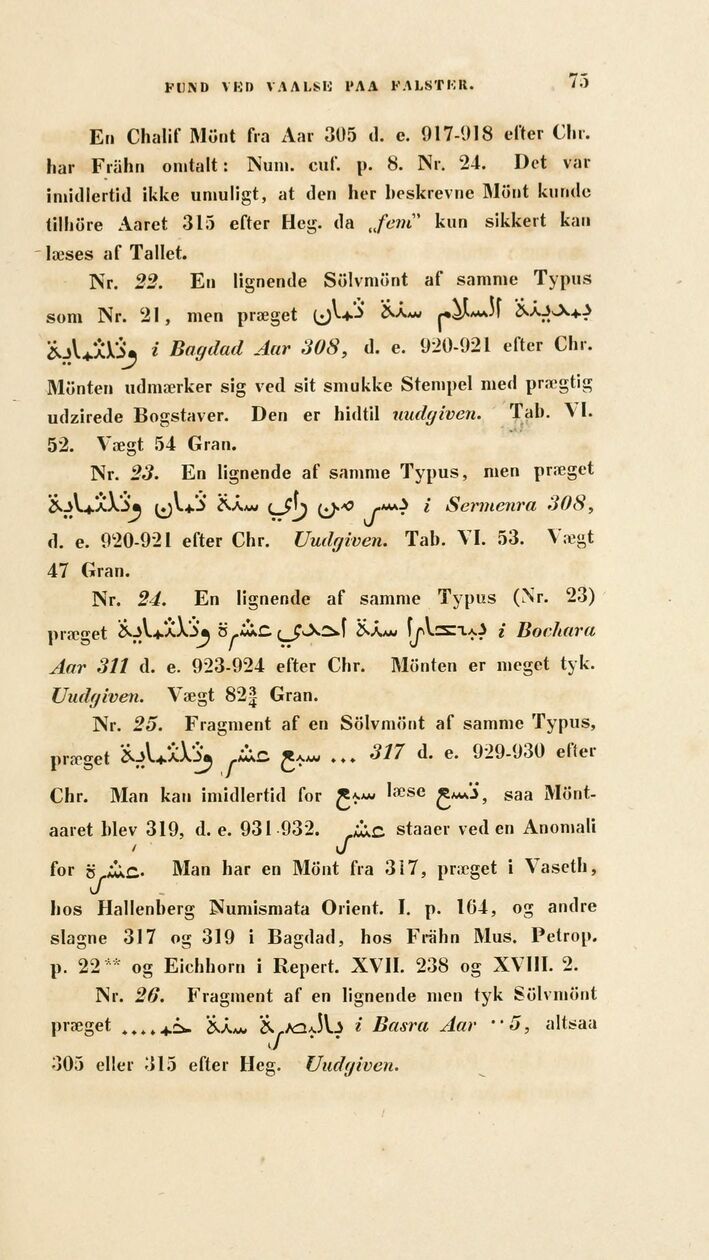 FUND VED VAALSE PAA FALSTER. 75
En Chalif Mönt fra Aar 305 d. e. 917-918 efter Chr.
har Frähn omtalt: Num. cuf. p. 8. Nr. 24. Det var
imidlertid ikke umuligt, at den her beskrevne Mönt kunde
tilhöre Aaret 315 efter Heg. da „fem” kun sikkert kan
læses af Tallet.
Nr. 22. En lignende Sölvmönt af samme Typus
som Nr. 21, men præget بمدينة السلم سنة ثمان
وثلثمائة i Bagdad Aar 308, d. e. 920-921 efter Chr.
Mönten udmærker sig ved sit smukke Stempel med prægtig
udzirede Bogstaver. Den er hidtil uudgiven. Tab. VI.
52. Vægt 54 Gran.
Nr. 23. En lignende af samme Typus, men præget
بسر من راى سنة ثمان وثلثماية i Sermenra 308,
d. e. 920-921 efter Chr. Uudgiven. Tab. VI. 53. Vægt
47 Gran.
Nr. 24. En lignende af samme Typus (Nr. 23)
præget ببخارا سنة احدى عشرة وثلثماية i Bochara
Aar 311 d. e. 923-924 efter Chr. Mönten er meget tyk.
Uudgiven. Vægt 82¾ Gran.
Nr. 25. Fragment af en Sölvmönt af samme Typus,
præget ... سبع عشر وثلثماية 317 d. e. 929-930 efter
Chr. Man kan imidlertid for سبع læse تسع, saa Mönt-
aaret blev 319, d. e. 931-932. عشر staaer ved en Anomali
for عشرة. Man har en Mönt fra 317, præget i Vaseth,
hos Hallenberg Numismata Orient. I. p. 164, og andre
slagne 317 og 319 i Bagdad, hos Frähn Mus. Petrop.
p. 22** og Eichhorn i Repert. XVII. 238 og XVIII. 2.
Nr. 26. Fragment af en lignende men tyk Sölvmönt
præget بالبصرة سنة خم.... i Basra Aar ··5, altsaa
305 eller 315 efter Heg. Uudgiven.